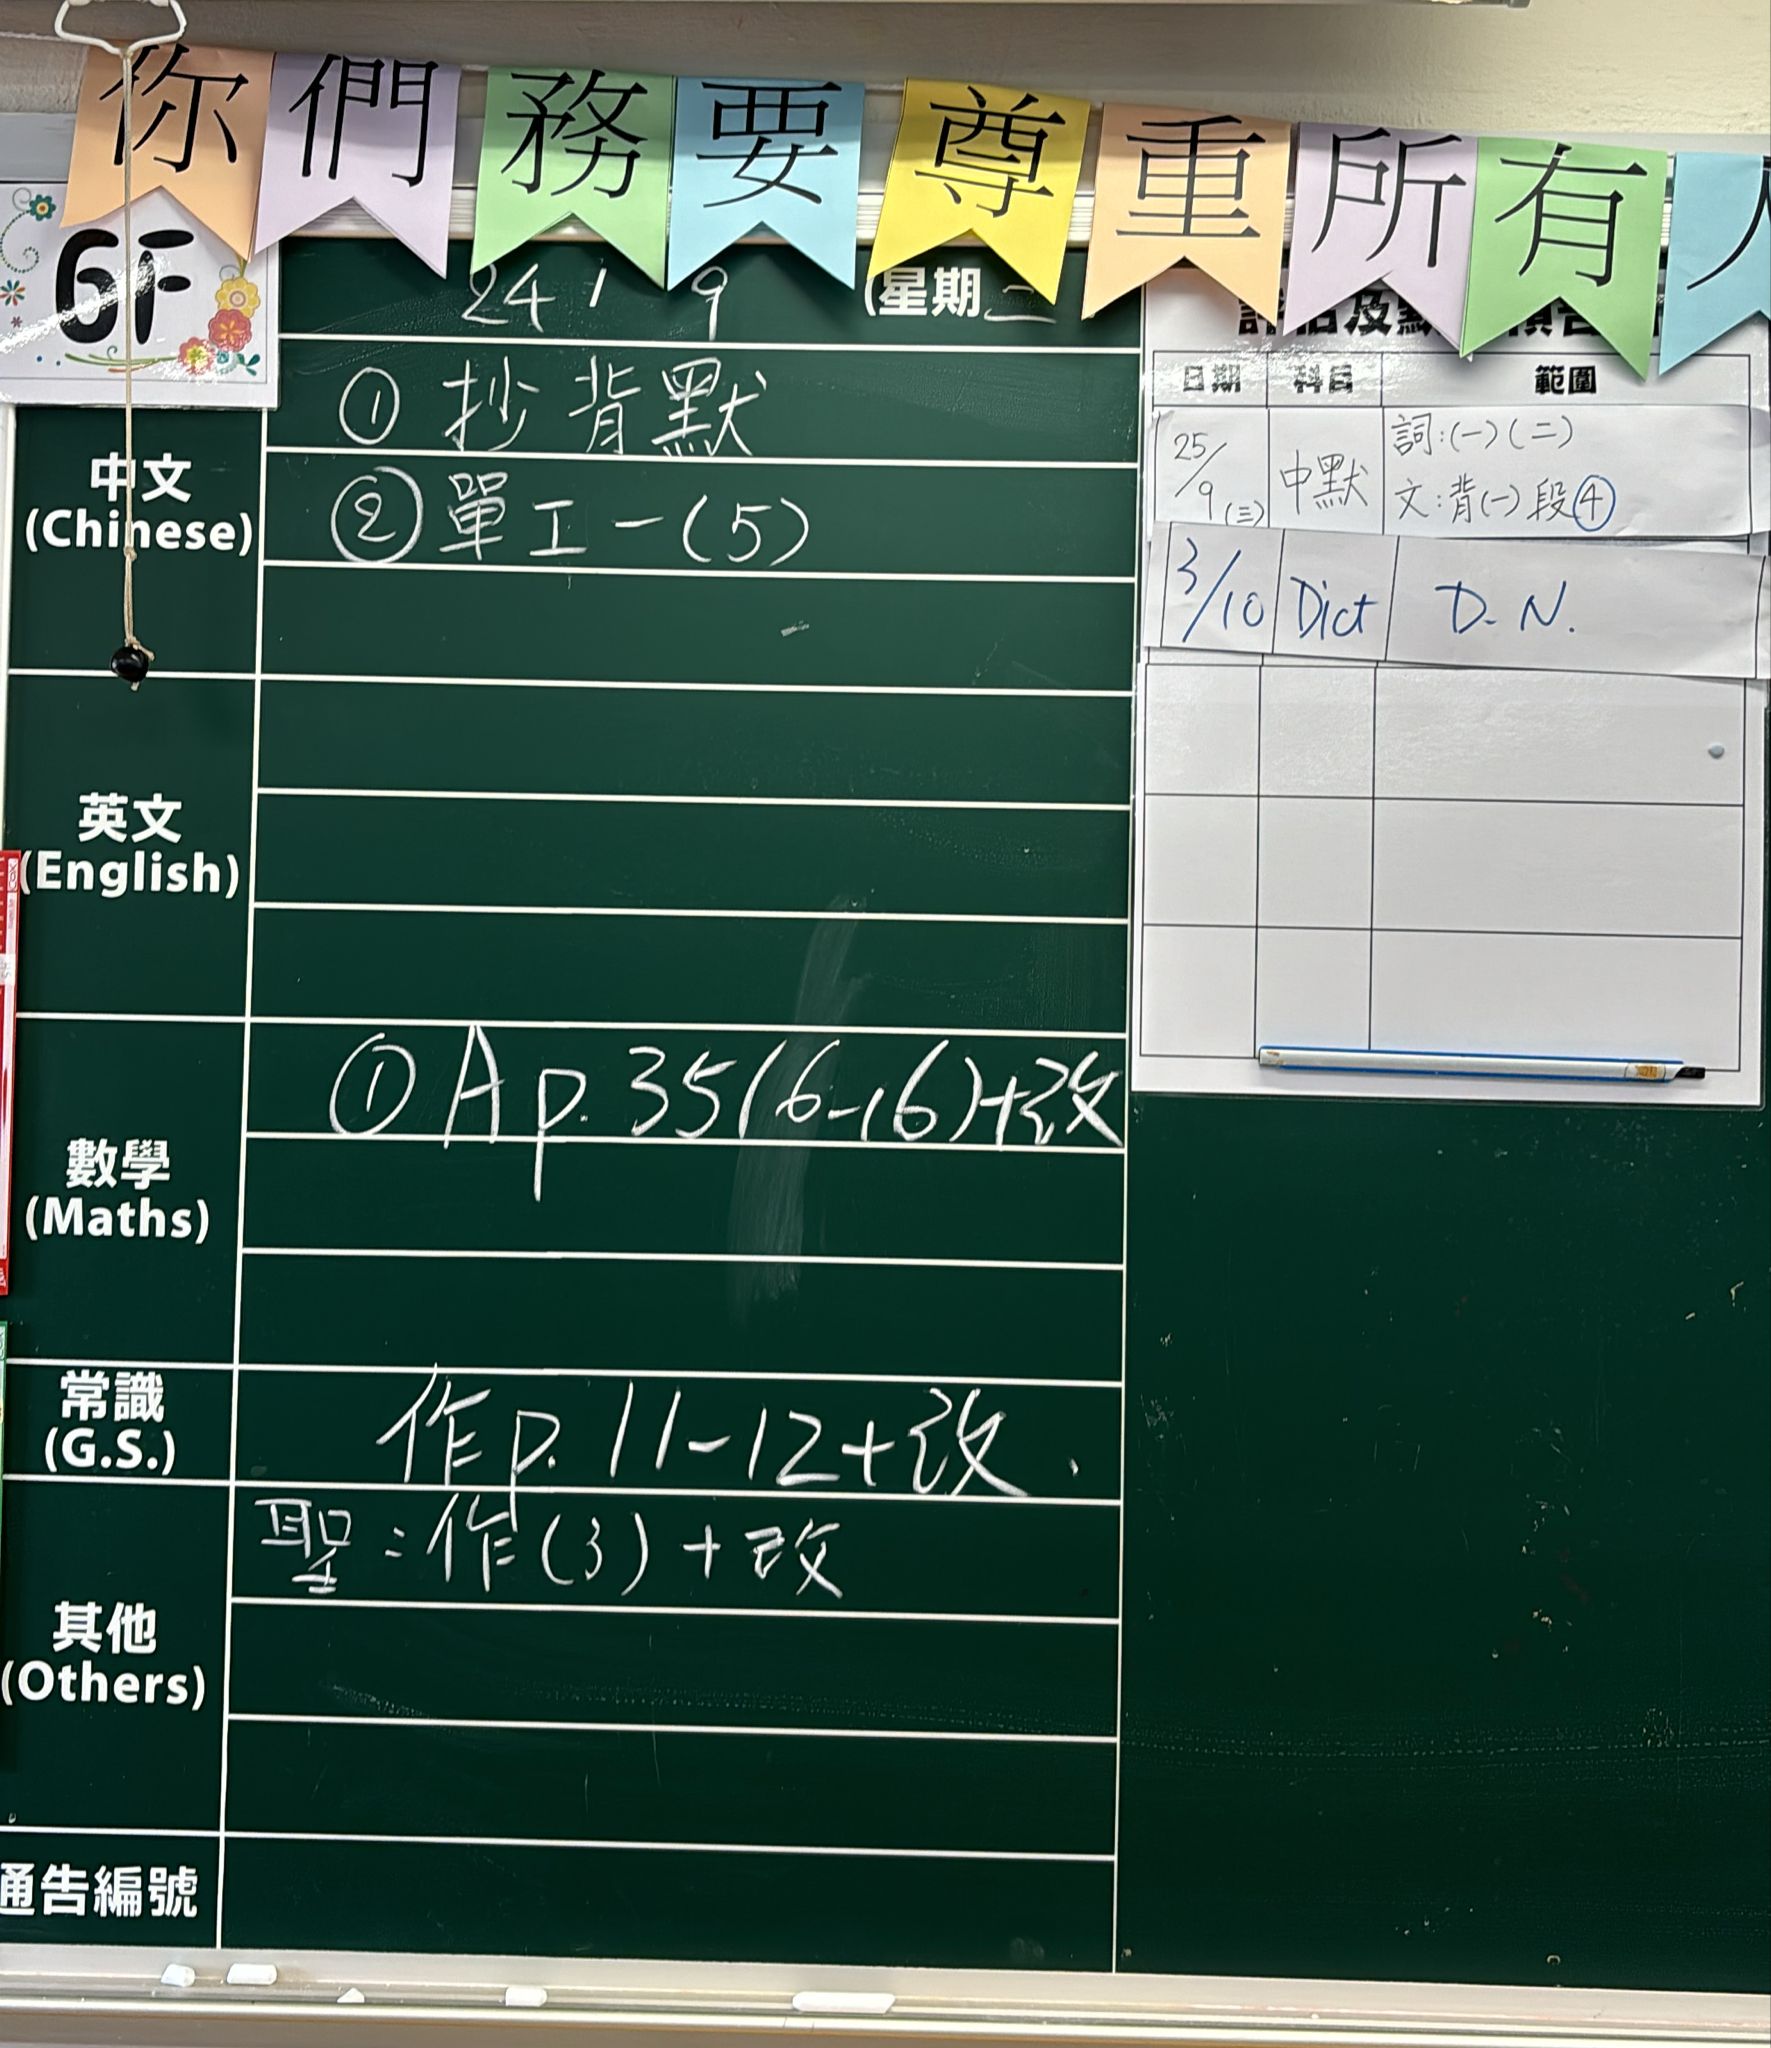 你們務要尊重所有人
6F
24 / 9 (星期二
中文
(Chinese)
① 抄背默
② 單工一(5)
英文
(English)
數學
(Maths)
① A p. 35(6-16)+改
常識
(G.S.)
作 p. 11-12+改.
其他
(Others)
聖:作(3)+改
通告編號
日期 科目 範圍
25/9(三) 中默 詞:(一)(二)
文:背(一)段④
3/10 Dict D. N.